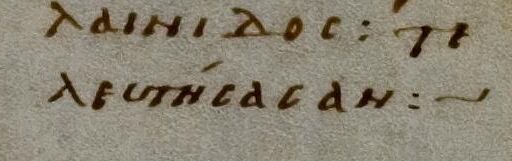 λαινιδος: τε
λευτήσασαν:~